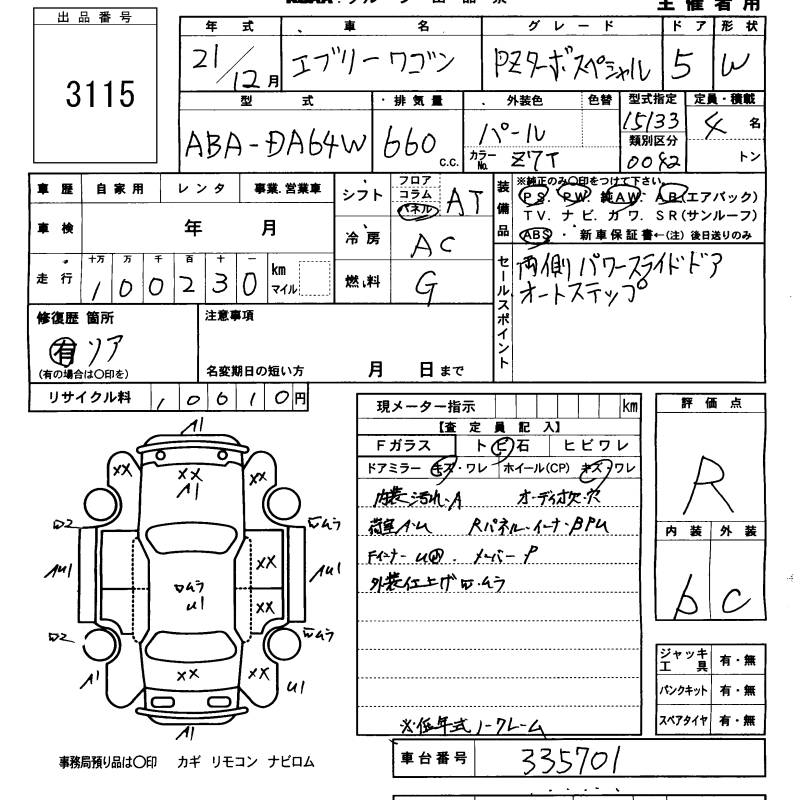 出品番号
3115
年式 車名 グレード ドア 形状
21/12月 エブリーワゴン PZターボスペシャル 5 W
型式 排気量 外装色 色替 型式指定 定員・積載
ABA-DA64W 660 c.c. パール 15133 4 名
カラーNo. Z7T 類別区分 0092 トン
車歴 自家用 レンタ 事業.営業車
車検 年 月
走行 十万 万 千 百 十 一
100230 km マイル
シフト フロア コラム パネル AT
冷房 AC
燃料 G
装備品 ※純正のみ○印をつけて下さい。
PS. PW. 純AW. AB(エアバック)
TV. ナビ. カワ. SR(サンルーフ)
ABS ・ 新車保証書←(注) 後日送りのみ
セールスポイント
両側パワースライドドア
オートステップ
修復歴 箇所
有 リア
(有の場合は○印を)
注意事項
名変期日の短い方 月 日まで
リサイクル料 10010円
現メーター指示 km
【査定員記入】
Fガラス トビ石 ヒビワレ
ドアミラー キズ・ワレ ホイール(CP) キズ・ワレ
内装汚れ・A オーディオ欠・穴
荷室A・U Rパネル・インナーBPU
外装仕上げ ムラ
※低年式ノークレーム
評価点
R
内装 外装
b C
ジャッキ工具 有・無
パンクキット 有・無
スペアタイヤ 有・無
A1
XX XX XX
A1
XX
ムラ
U1
XX
XX XX
A1 U1
A1
事務局預り品は○印 カギ リモコン ナビロム
車台番号 335701